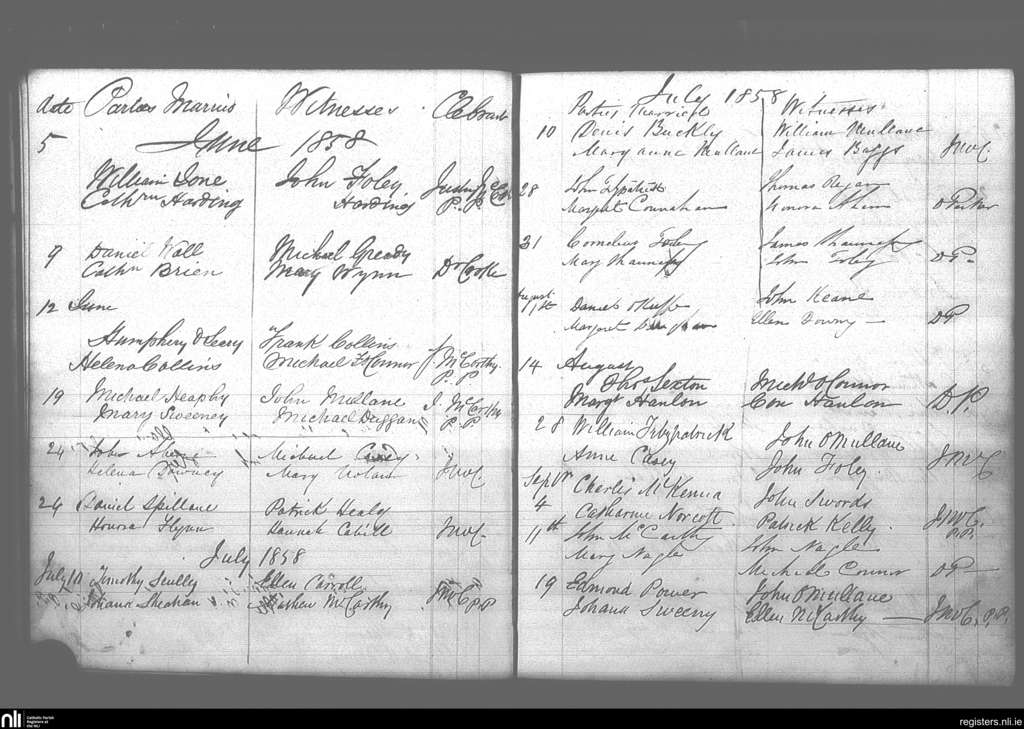 Date Parties Married Witnesses Celebrant
5 June 1858
William Ione John Foley Justin McC
Cathrn Harding Harding P.P.
9 Daniel Wall Michael Gready
Cathn Brien Mary Wynn D Cooke
12 June
Humphery O Leary Frank Collins
Helena Collins Michael O Connor J McCarthy
P.P
19 Michael Heaphy John Mullane J. McCarthy
Mary Sweeney Michael Duggan P.P
24 John Michael
Helena Downey Mary Nolan JMcC.
24 Daniel Spillane Patrick Healy
Honora Flynn Hannah Cahill JMcC.
July 1858
July 10 Timothy Scully Ellen Carroll
Johana Sheehan McCarthy JMcC PP
July 1858
Parties Married Witnesses
10 Denis Buckly William Mullane
Mary anne Mullane James Baggs JMcC.
28 John Fitzpatrick Thomas Regan
Margaret Counahan Honora Ahern D Parker
31 Cornelius Foley James
Mary John Foley DP-
August
11th Daniel O Keeffe John Keane
Margaret Ellen Downy — DP
14 August
Thos Sexton Michl O Connor
Margt Hanlon Con Hanlon D.P.
28 William Fitzpatrick John O Mullane
Anne Casey John Foley. JMcC
Septbr
4 Charles McKenna John Swords
Catharine Norcott Patrick Kelly. JMcC.
P.P.
11th John McCarthy John Nagle
Mary Nagle Micheal Connor DP
19 Edmond Power John O Mullane
Johana Sweeny Ellen McCarthy — JMcC. P.P.
nli Catholic Parish
Registers at
the NLI
registers.nli.ie